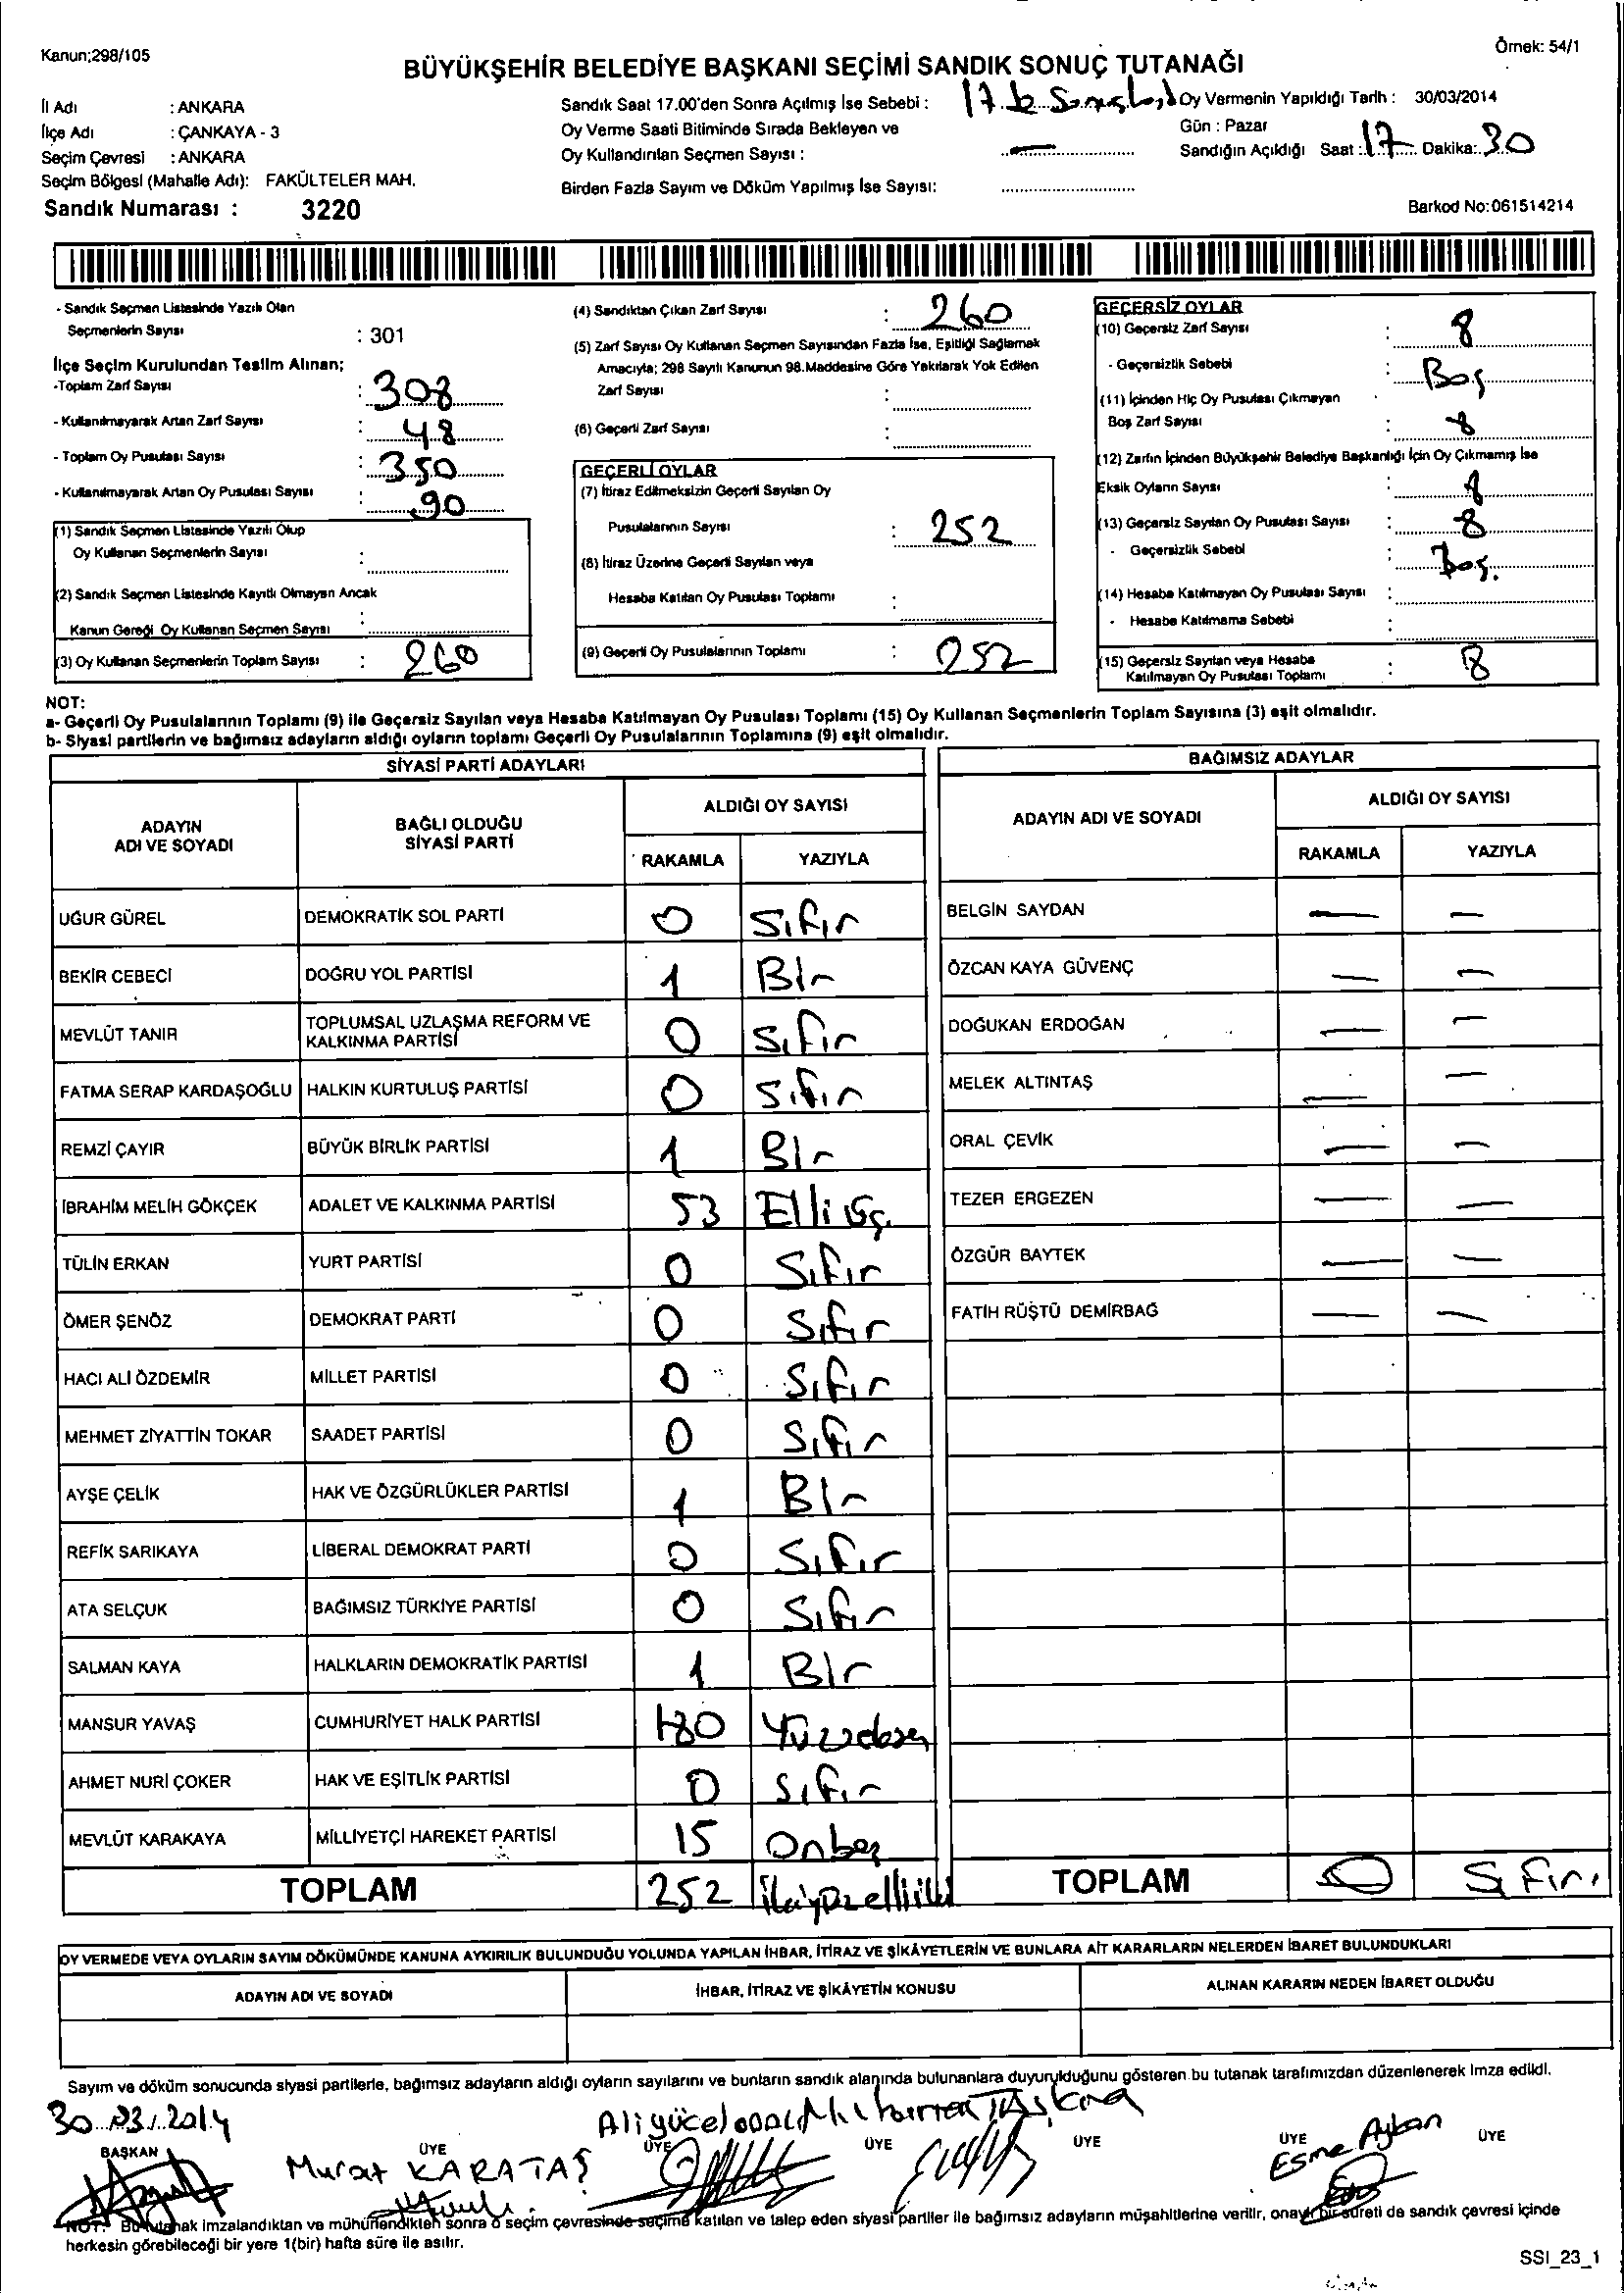 Kanun;298/105
Örnek: 54/1
BÜYÜKŞEHİR BELEDİYE BAŞKANI SEÇİMİ SANDIK SONUÇ TUTANAĞI
İl Adı : ANKARA
İlçe Adı : ÇANKAYA - 3
Seçim Çevresi : ANKARA
Seçim Bölgesi (Mahalle Adı): FAKÜLTELER MAH.
Sandık Numarası : 3220
Sandık Saat 17.00'den Sonra Açılmış İse Sebebi :
Oy Verme Saati Bitiminde Sırada Bekleyen ve
Oy Kullandırılan Seçmen Sayısı :
Birden Fazla Sayım ve Döküm Yapılmış İse Sayısı:
Oy Vermenin Yapıldığı Tarih : 30/03/2014
Gün : Pazar
Sandığın Açıldığı Saat : 17 Dakika: 30
Barkod No:061514214
- Sandık Seçmen Listesinde Yazılı Olan
Seçmenlerin Sayısı : 301
İlçe Seçim Kurulundan Teslim Alınan;
-Toplam Zarf Sayısı : 308
- Kullanılmayarak Artan Zarf Sayısı : 48
- Toplam Oy Pusulası Sayısı : 350
- Kullanılmayarak Artan Oy Pusulası Sayısı : 90
(1) Sandık Seçmen Listesinde Yazılı Olup
Oy Kullanan Seçmenlerin Sayısı :
(2) Sandık Seçmen Listesinde Kayıtlı Olmayan Ancak
Kanun Gereği Oy Kullanan Seçmen Sayısı :
(3) Oy Kullanan Seçmenlerin Toplam Sayısı : 260
(4) Sandıktan Çıkan Zarf Sayısı : 260
(5) Zarf Sayısı Oy Kullanan Seçmen Sayısından Fazla İse, Eşitliği Sağlamak
Amacıyla; 298 Sayılı Kanunun 98.Maddesine Göre Yakılarak Yok Edilen
Zarf Sayısı :
(6) Geçerli Zarf Sayısı :
GEÇERLİ OYLAR
(7) İtiraz Edilmeksizin Geçerli Sayılan Oy
Pusulalarının Sayısı : 252
(8) İtiraz Üzerine Geçerli Sayılan veya
Hesaba Katılan Oy Pusulası Toplamı :
(9) Geçerli Oy Pusulalarının Toplamı : 252
GEÇERSİZ OYLAR
(10) Geçersiz Zarf Sayısı : 8
- Geçersizlik Sebebi : Boş
(11) İçinden Hiç Oy Pusulası Çıkmayan
Boş Zarf Sayısı : 8
(12) Zarfın İçinden Büyükşehir Belediye Başkanlığı İçin Oy Çıkmamış İse
Eksik Oyların Sayısı : 8
(13) Geçersiz Sayılan Oy Pusulası Sayısı : 8
- Geçersizlik Sebebi : Boş.
(14) Hesaba Katılmayan Oy Pusulası Sayısı :
- Hesaba Katılmama Sebebi :
(15) Geçersiz Sayılan veya Hesaba
Katılmayan Oy Pusulası Toplamı : 8
NOT:
a- Geçerli Oy Pusulalarının Toplamı (9) ile Geçersiz Sayılan veya Hesaba Katılmayan Oy Pusulası Toplamı (15) Oy Kullanan Seçmenlerin Toplam Sayısına (3) eşit olmalıdır.
b- Siyasi partilerin ve bağımsız adayların aldığı oyların toplamı Geçerli Oy Pusulalarının Toplamına (9) eşit olmalıdır.
SİYASİ PARTİ ADAYLARI
ADAYIN ADI VE SOYADI BAĞLI OLDUĞU SİYASİ PARTİ ALDIĞI OY SAYISI
RAKAMLA YAZIYLA
UĞUR GÜREL DEMOKRATİK SOL PARTİ 0 Sıfır
BEKİR CEBECİ DOĞRU YOL PARTİSİ 1 Bir
MEVLÜT TANIR TOPLUMSAL UZLAŞMA REFORM VE KALKINMA PARTİSİ 0 Sıfır
FATMA SERAP KARDAŞOĞLU HALKIN KURTULUŞ PARTİSİ 0 Sıfır
REMZİ ÇAYIR BÜYÜK BİRLİK PARTİSİ 1 Bir
İBRAHİM MELİH GÖKÇEK ADALET VE KALKINMA PARTİSİ 53 Elli üç
TÜLİN ERKAN YURT PARTİSİ 0 Sıfır
ÖMER ŞENÖZ DEMOKRAT PARTİ 0 Sıfır
HACI ALİ ÖZDEMİR MİLLET PARTİSİ 0 Sıfır
MEHMET ZİYATTİN TOKAR SAADET PARTİSİ 0 Sıfır
AYŞE ÇELİK HAK VE ÖZGÜRLÜKLER PARTİSİ 1 Bir
REFİK SARIKAYA LİBERAL DEMOKRAT PARTİ 0 Sıfır
ATA SELÇUK BAĞIMSIZ TÜRKİYE PARTİSİ 0 Sıfır
SALMAN KAYA HALKLARIN DEMOKRATİK PARTİSİ 1 Bir
MANSUR YAVAŞ CUMHURİYET HALK PARTİSİ 180
AHMET NURİ ÇOKER HAK VE EŞİTLİK PARTİSİ 0 Sıfır
MEVLÜT KARAKAYA MİLLİYETÇİ HAREKET PARTİSİ 15 Onbeş
TOPLAM 252
BAĞIMSIZ ADAYLAR
ADAYIN ADI VE SOYADI ALDIĞI OY SAYISI
RAKAMLA YAZIYLA
BELGİN SAYDAN — —
ÖZCAN KAYA GÜVENÇ — —
DOĞUKAN ERDOĞAN — —
MELEK ALTINTAŞ — —
ORAL ÇEVİK — —
TEZER ERGEZEN — —
ÖZGÜR BAYTEK — —
FATİH RÜŞTÜ DEMİRBAĞ — —
TOPLAM 0 Sıfır
OY VERMEDE VEYA OYLARIN SAYIM DÖKÜMÜNDE KANUNA AYKIRILIK BULUNDUĞU YOLUNDA YAPILAN İHBAR, İTİRAZ VE ŞİKÂYETLERİN VE BUNLARA AİT KARARLARIN NELERDEN İBARET BULUNDUKLARI
ADAYIN ADI VE SOYADI İHBAR, İTİRAZ VE ŞİKÂYETİN KONUSU ALINAN KARARIN NEDEN İBARET OLDUĞU
Sayım ve döküm sonucunda siyasi partilerle, bağımsız adayların aldığı oyların sayılarını ve bunların sandık alanında bulunanlara duyurulduğunu gösteren bu tutanak tarafımızdan düzenlenerek imza edildi.
30.03.2014
BAŞKAN ÜYE ÜYE ÜYE ÜYE ÜYE ÜYE
Murat KARATAŞ
Esme Aykan
NOT: Bu tutanak imzalandıktan ve mühürlendikten sonra o seçim çevresinde seçime katılan ve talep eden siyasi partiler ile bağımsız adayların müşahitlerine verilir, onaylı bir sureti de sandık çevresi içinde
herkesin görebileceği bir yere 1(bir) hafta süre ile asılır.
SSI_23_1